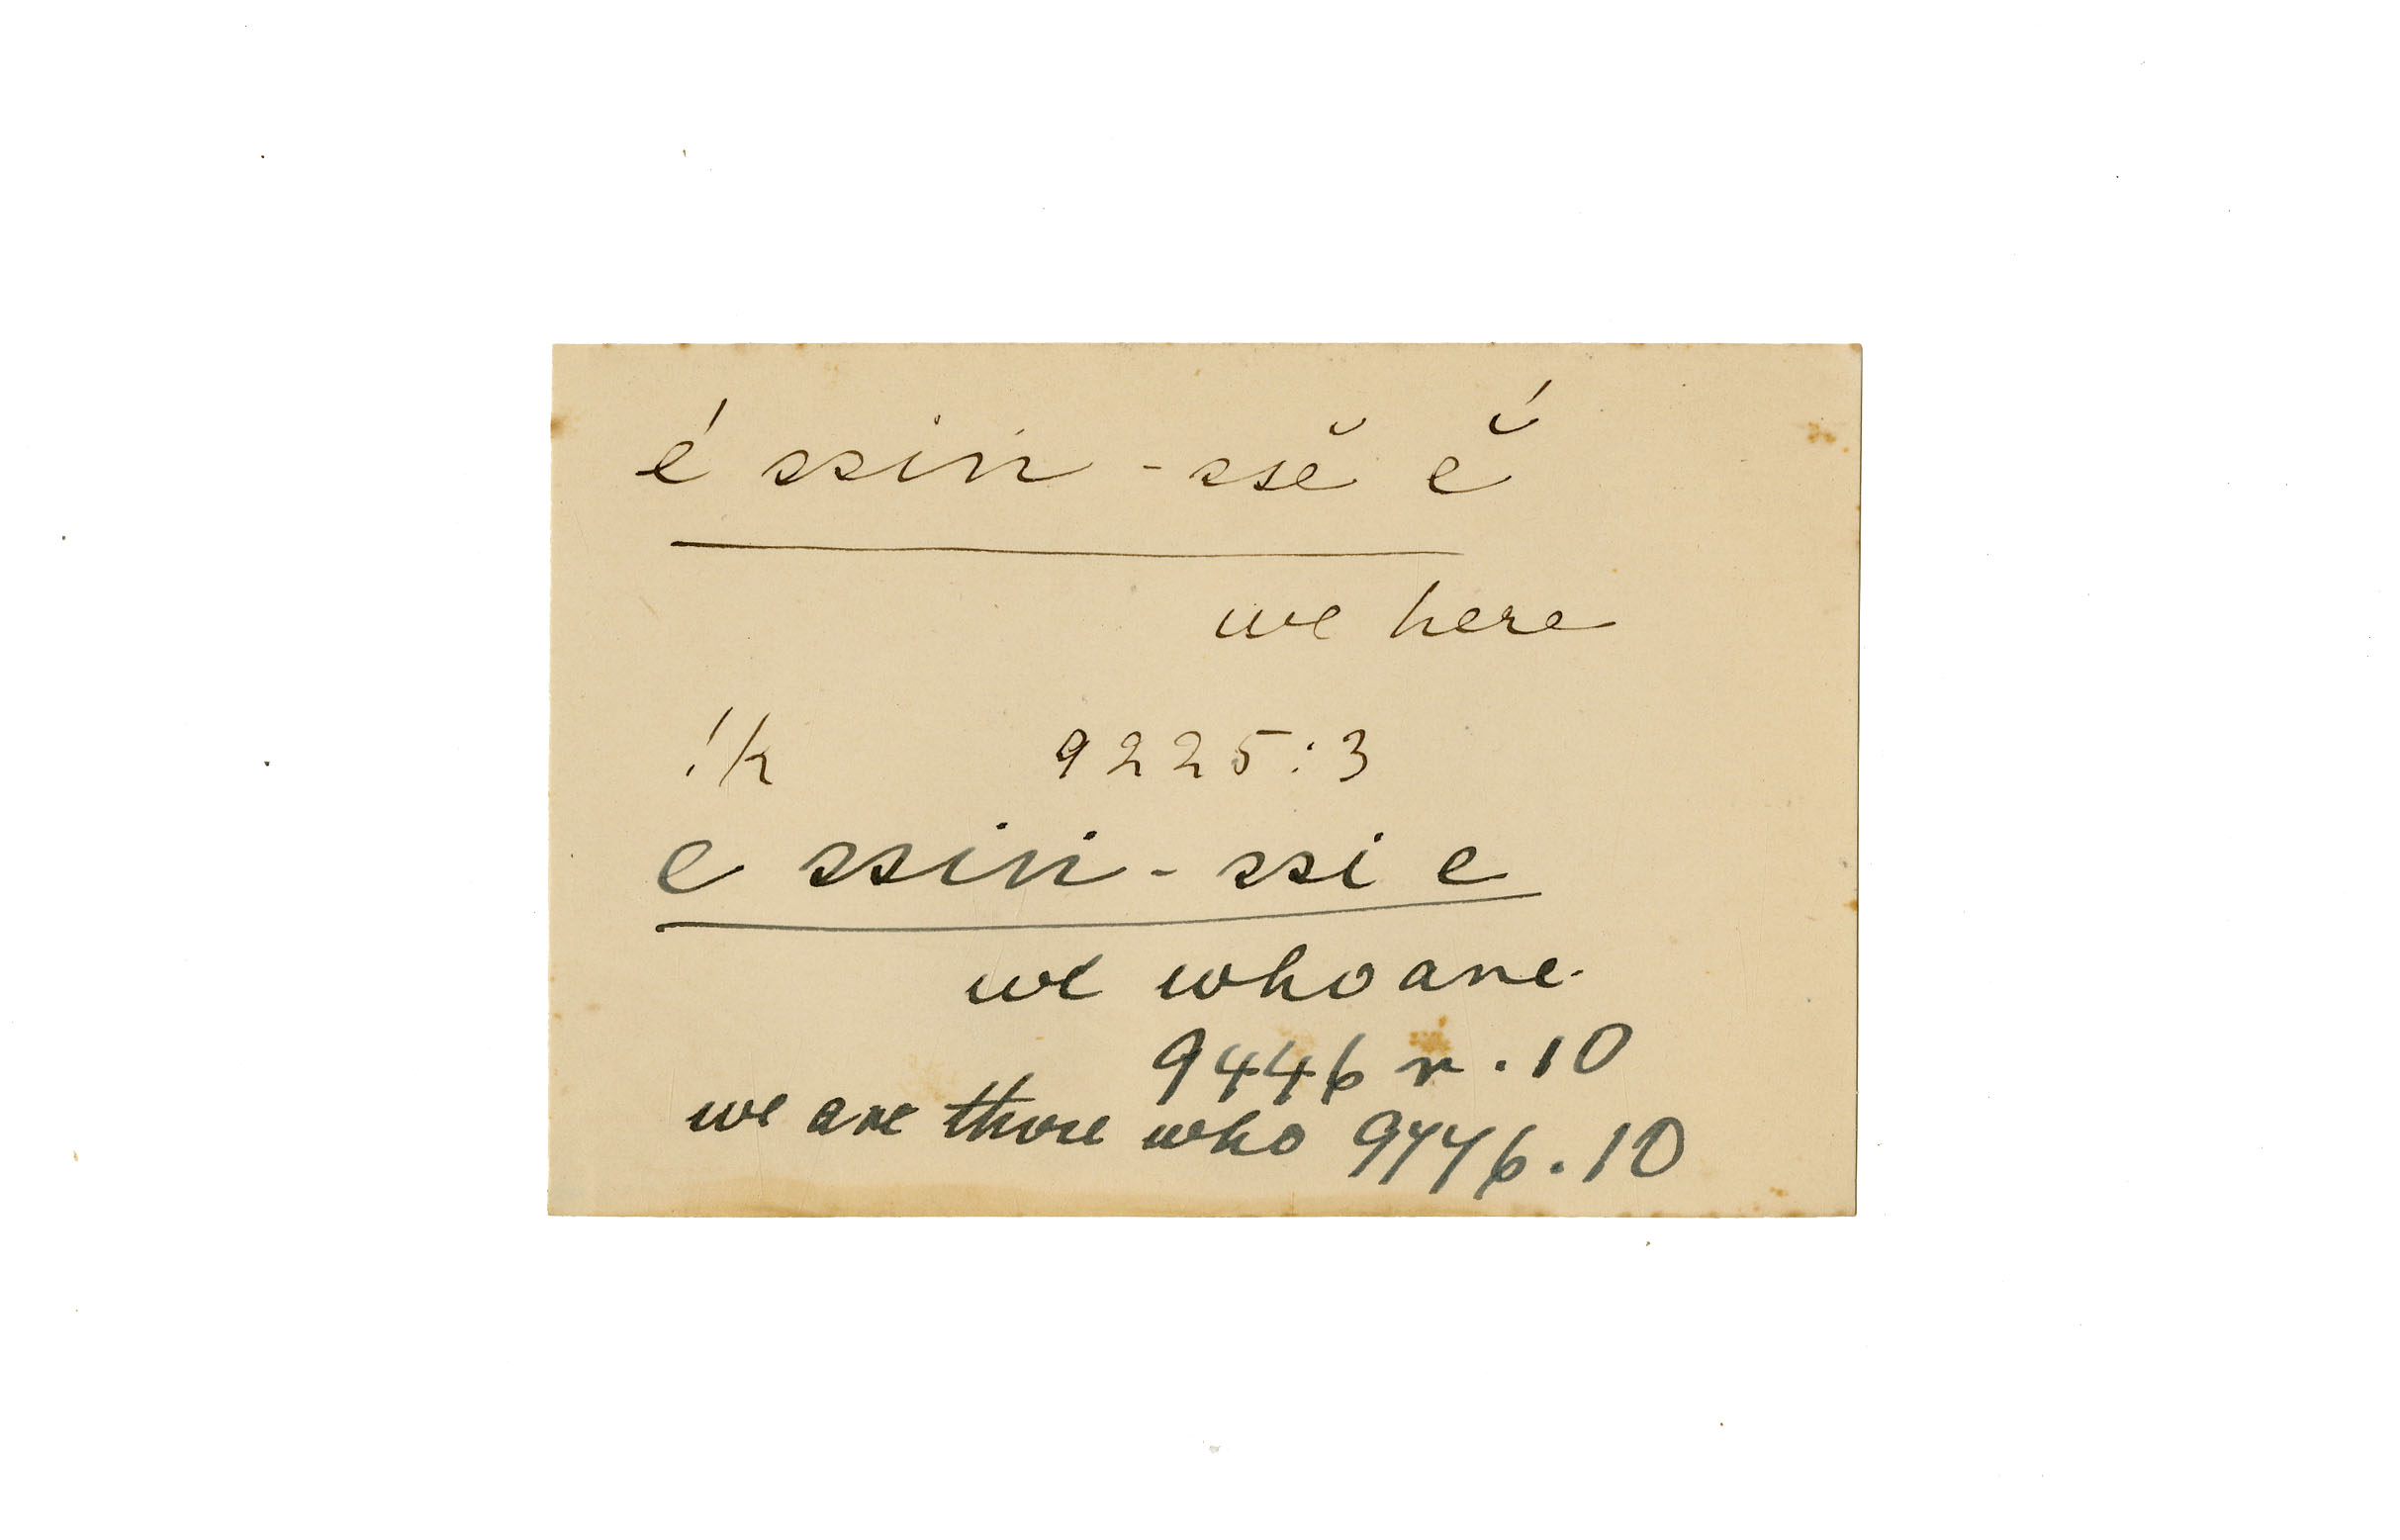 é ssin - ssĕ ĕ́
we here
!k 9225:3
e ssin - ssi e
we who are.
9446 r. 10
we are those who 9446. 10